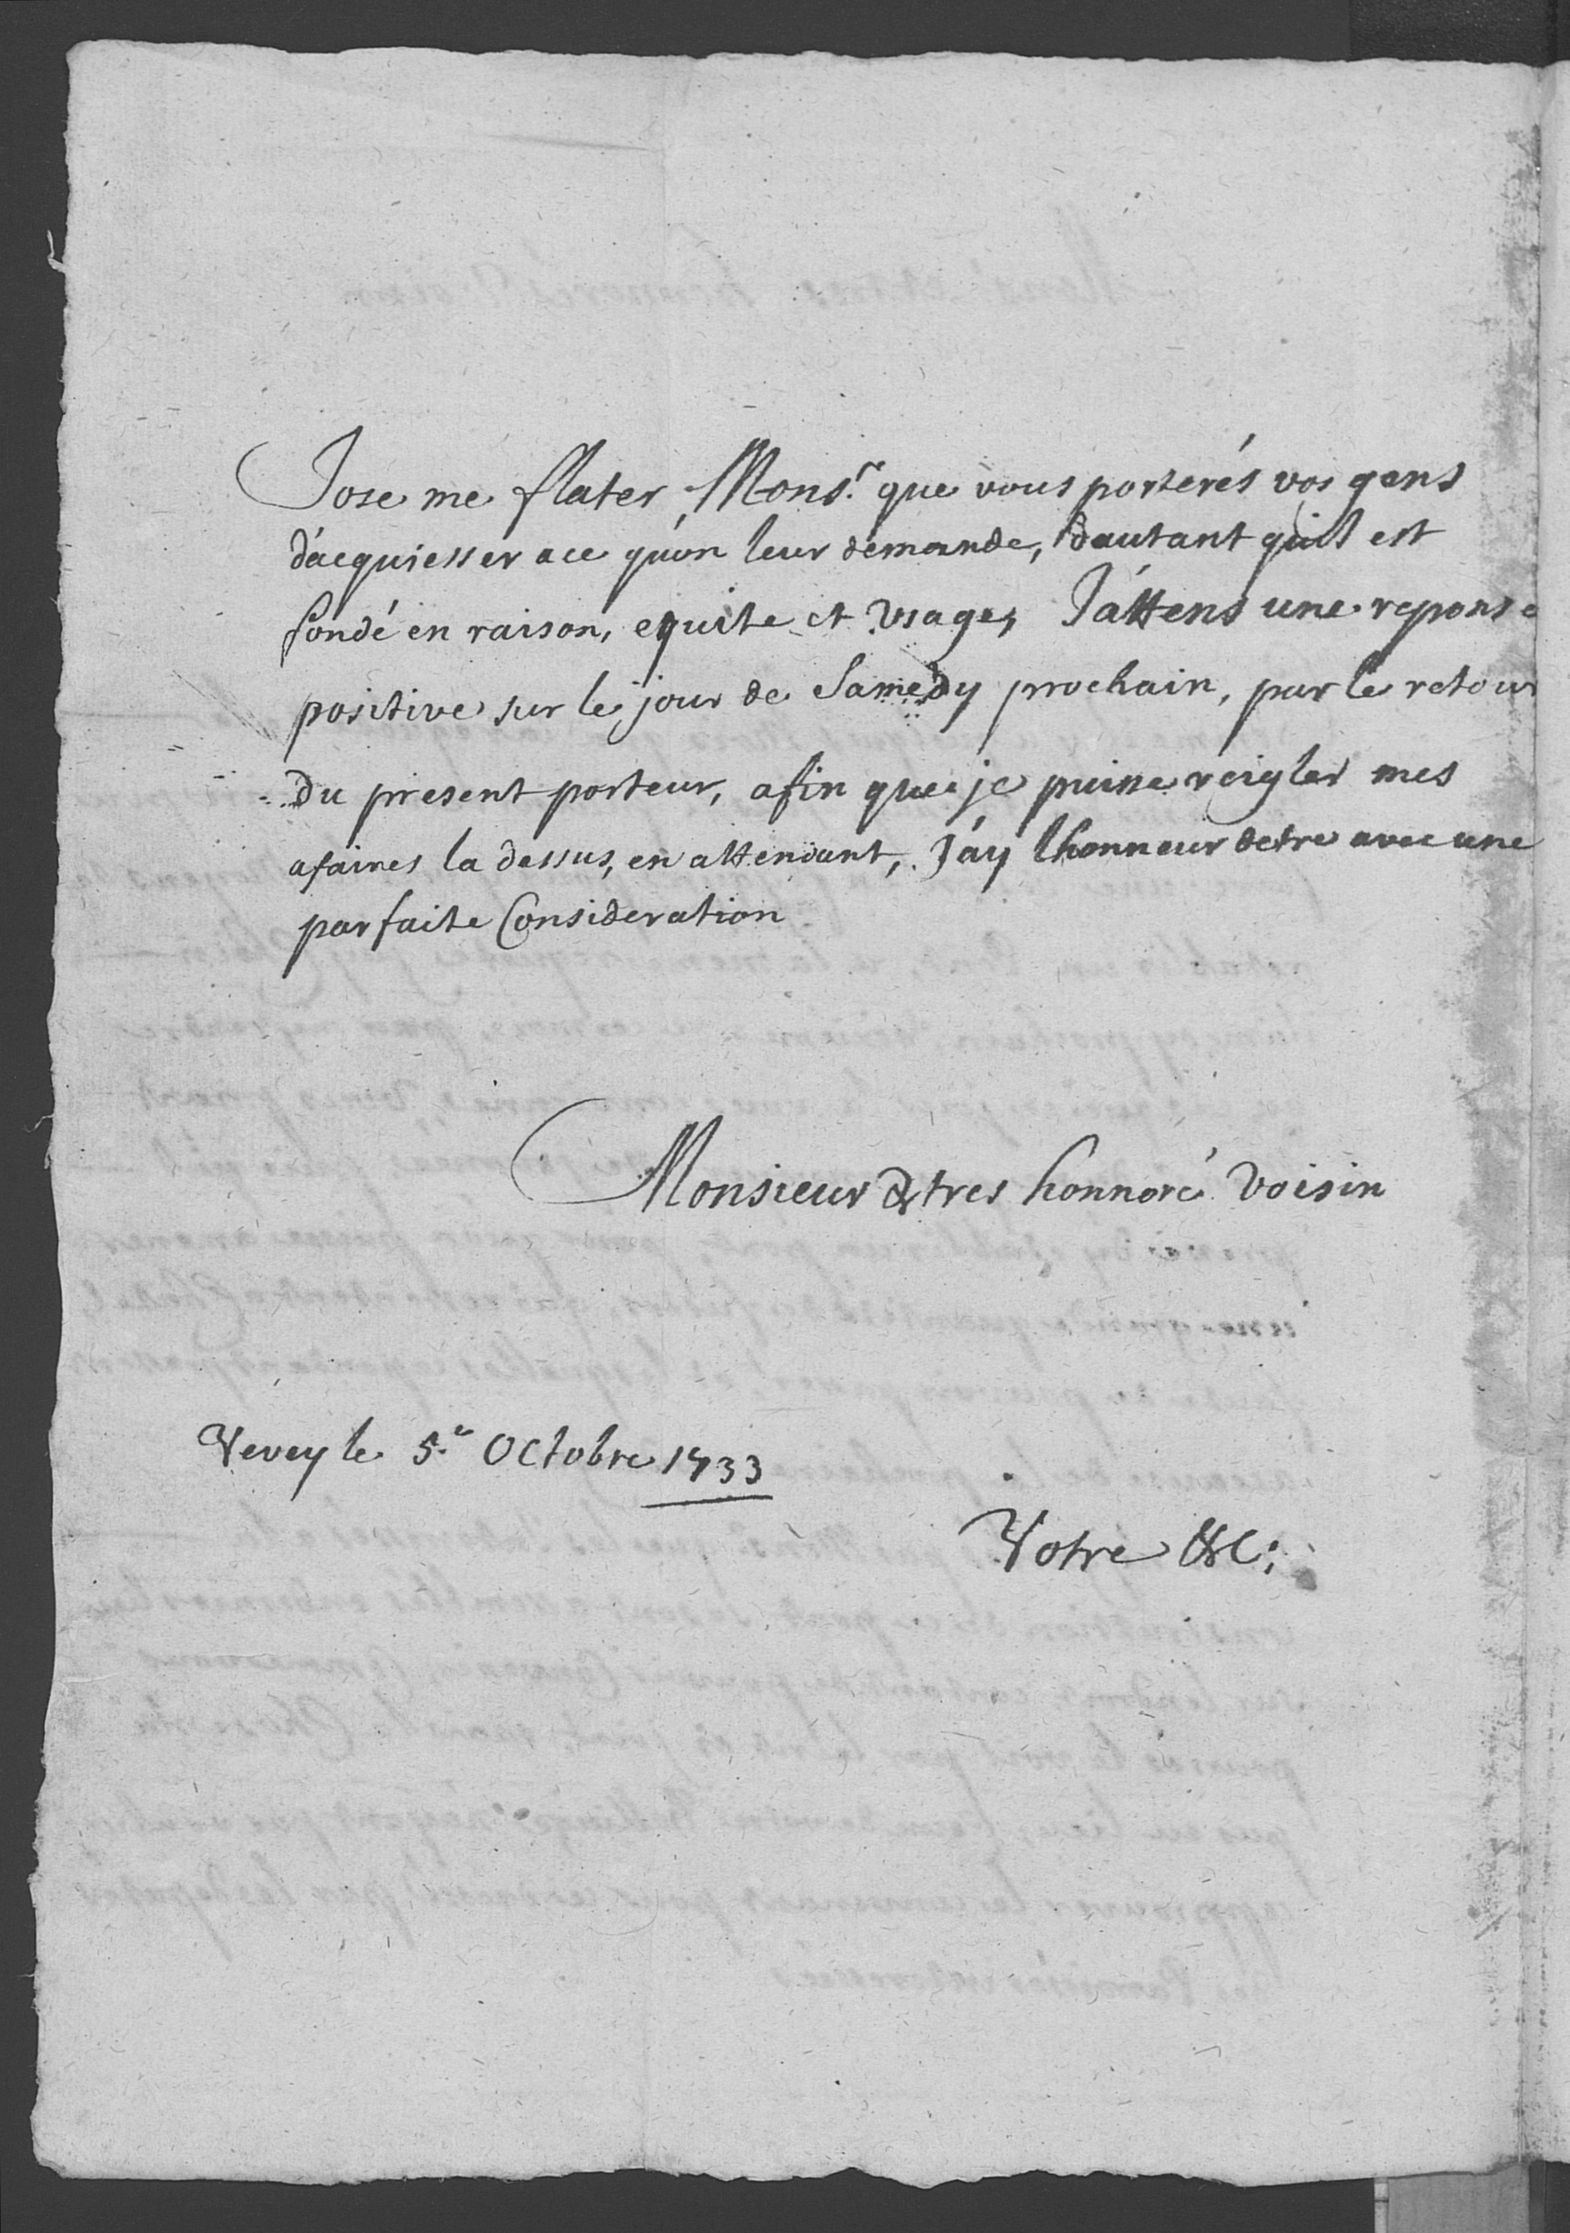 Jose me flater, Monsr. que vous porterés vos gens
d'acquiesser a ce qu'on leur demande, dautant quil est
fondé en raison, equite et Usage, J'attens une reponse
positive sur le jour de Samedy prochain, par le retour
du present porteur, afin que je puisse reigler mes
afaires la dessus, en attendant, J'ay lhonneur detre avec une
parfaite Consideration
Monsieur & tres honnoré Voisin
Vevey le 5.e Octobre 1733
Votre &c: